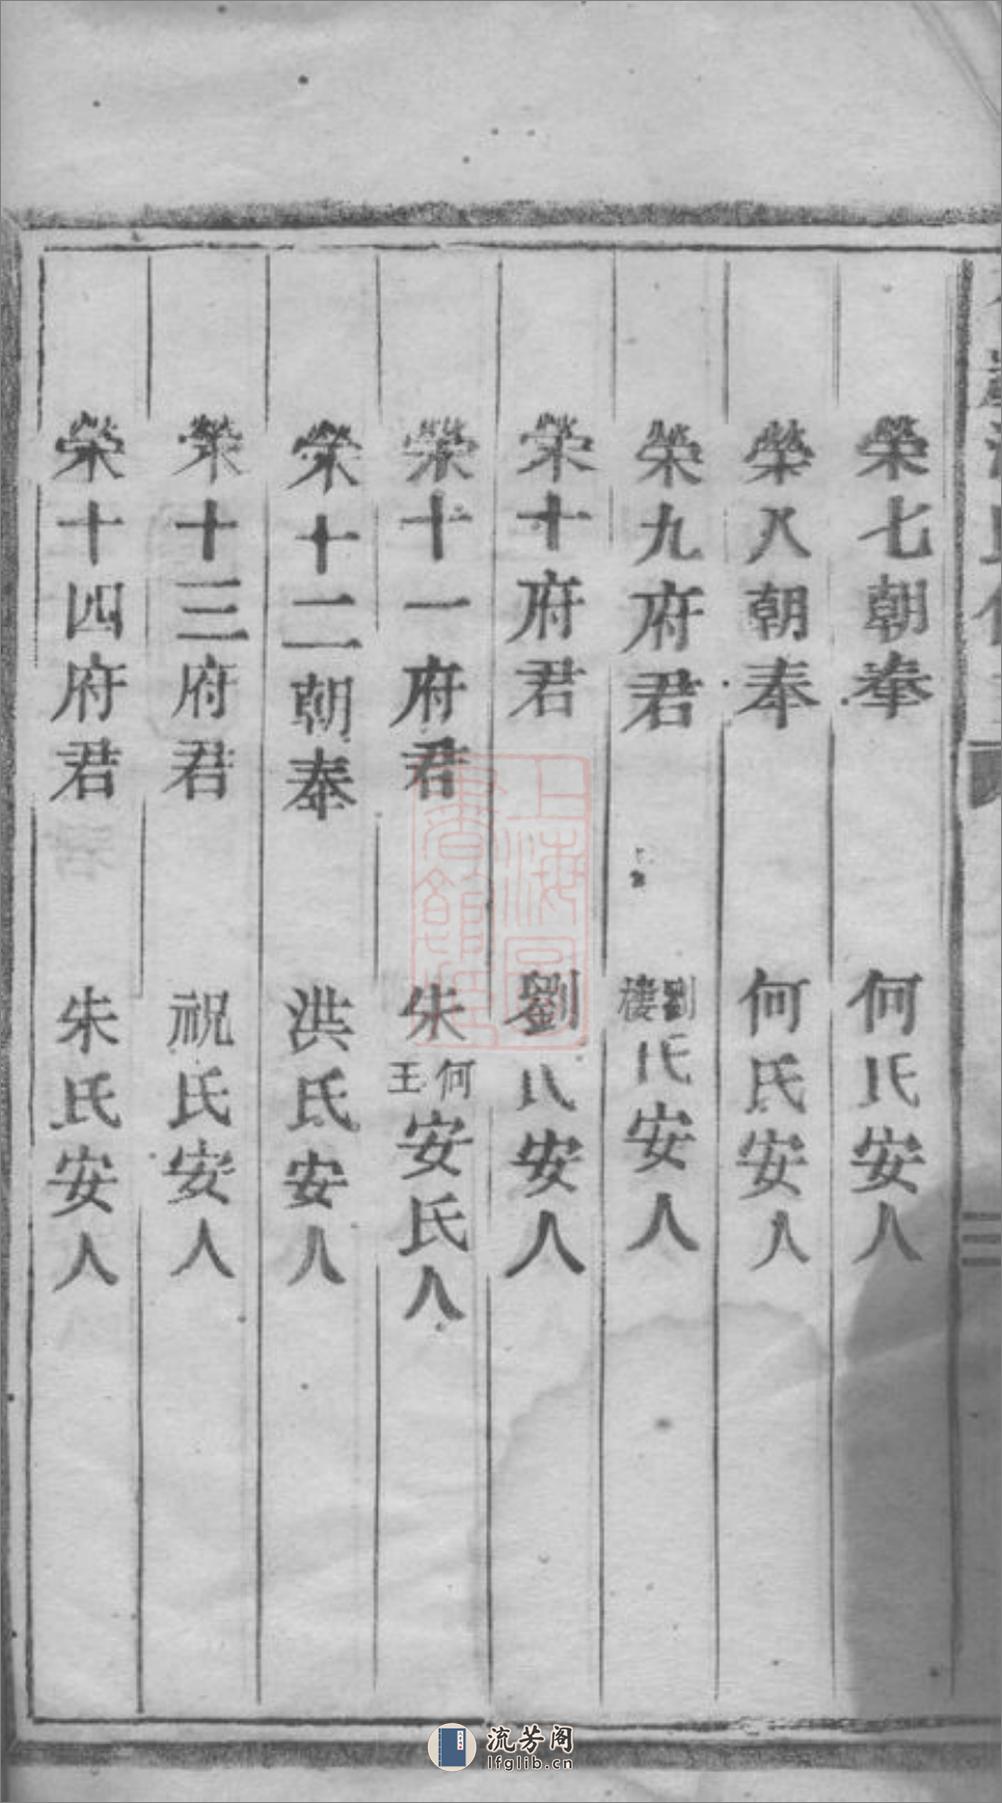 榮七朝奉 何氏安人
榮八朝奉 何氏安人
榮九府君 劉樓氏安人
榮十府君 劉氏安人
榮十一府君 朱何王安氏人
榮十二朝奉 洪氏安人
榮十三府君 祝氏安人
榮十四府君 朱氏安人
上海圖書館藏
流芳阁
lfglib.cn